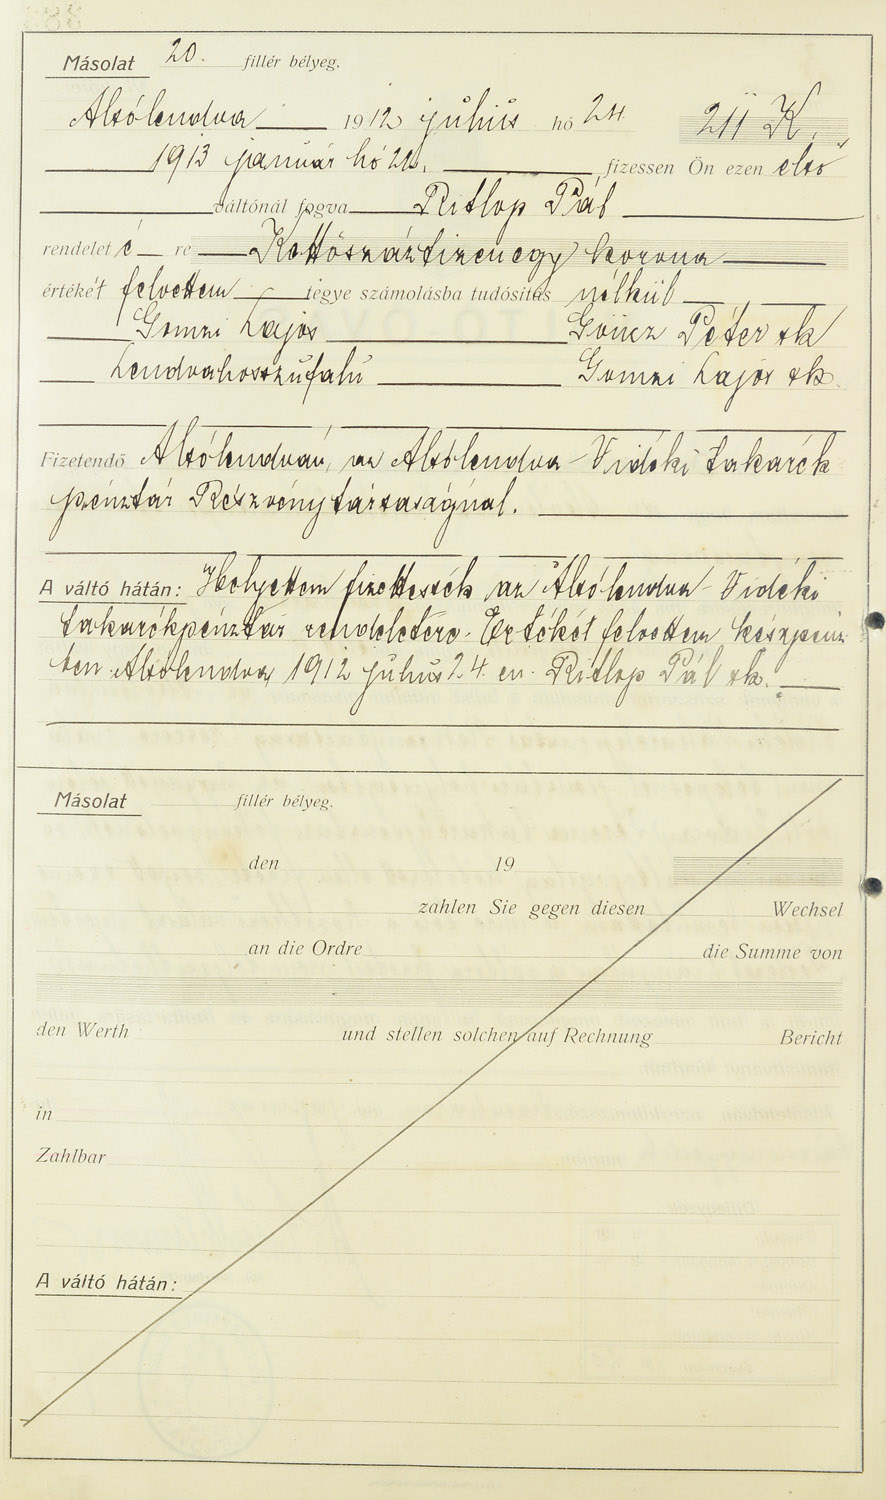 Másolat 20. fillér bélyeg.
Alsólendva 1912 július hó 24 211 K.
1913 január hó 21. fizessen Ön ezen első
váltónál fogva Ritlop Pál
rendelet é re Kettőszáztizenegy korona
értékét felvettem tegye számolásba tudósitás nélkül
Gomzi Lajos Göncz Péter sk
Lendvahosszufalu Gomzi Lajos sk.
Fizetendő Alsólendván, az Alsólendva-Vidéki takarék
pénztár Részvénytársaságnál.
A váltó hátán: Helyettem fizettessék az Alsólendva-Vidéki
takarékpénztár rendeletére. Értékét felvettem készpénz
ben. Alsólendva, 1912 július 24. én. Ritlop Pál sk.
Másolat fillér bélyeg.
den 19
zahlen Sie gegen diesen Wechsel
an die Ordre die Summe von
den Werth und stellen solchen auf Rechnung Bericht
in
Zahlbar
A váltó hátán: